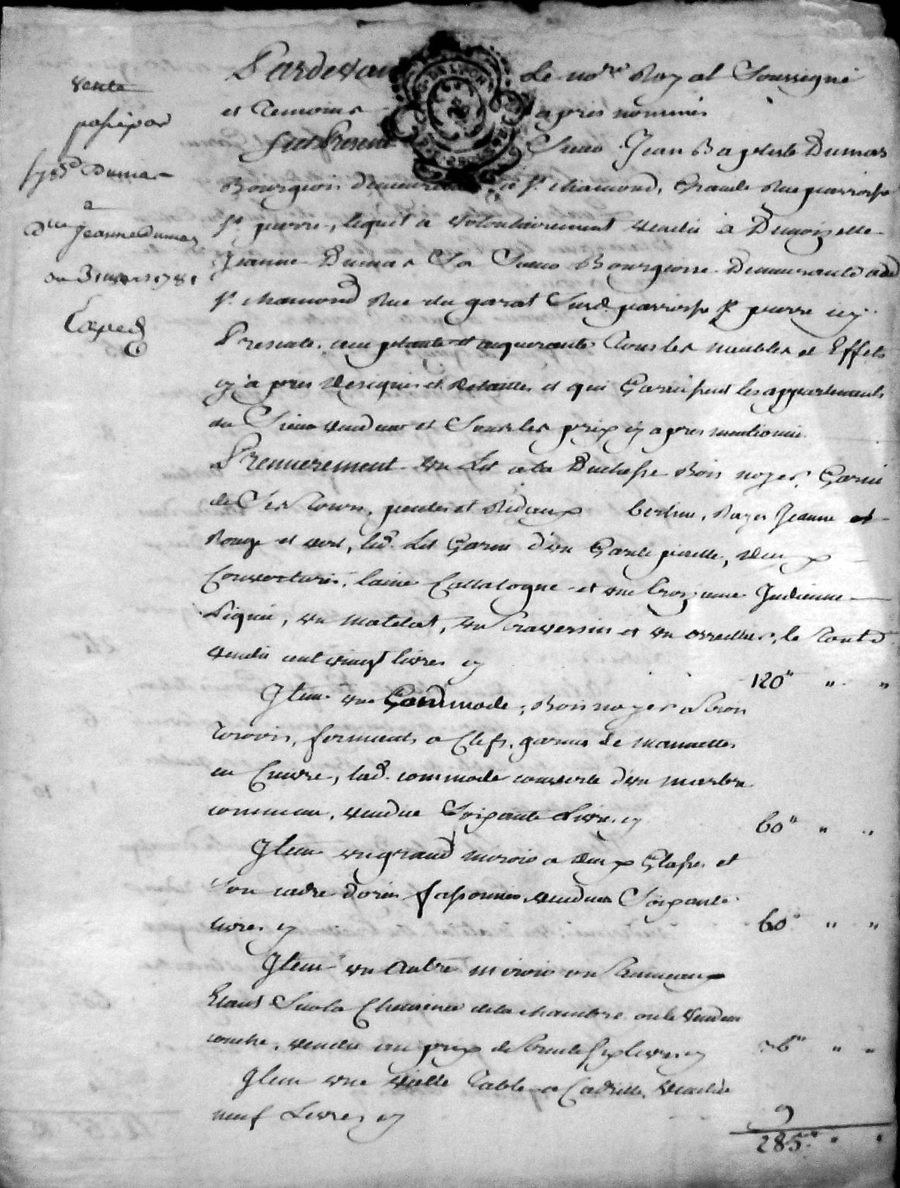 vente
passé par
Sr Jn Bte Dumas
a
Dlle Jeanne Dumas
du 3 mars 1781
Expedé
Pardevant Le nore Royal Soussigné
et Temoins apres nommés
fut Present Sieur Jean Baptiste Dumas
Bourgeois demeurant a St chamond, Grande Rue parroisse
St pierre, lequel a volontairement vendu à Demoizelle
Jeanne Dumas Sa Sœur Bourgeoise Demeurante aud
St chamond Rue du garat Susd. parroisse St pierre icy
Presente, acceptante et acquerante Tous les meubles et Effets
cy apres designés et detaillés et qui Garnissent les appartements
du Sieur vendeur et Sous les prix cy apres mentionnés
Premierement un Lit a la Duchesse Bois noyer, Garni
de Ses Tours, pentes et Rideaux berline, Rayes Jeaune et
Rouge et vert, led. Lit Garni d'un Garde paille, deux
Couvertures, laine Cattalogne et une indienne
Piquée, un matelat, un Traversin et un oreiller, le Tout
vendu cent vingt livres cy 120" " "
Item une Commode, Bois noyer a trois
Tiroirs, ferments a Clefs, garnis de mannettes
en Cuivre, lad. commode couverte d'un marbre
commun, vendue Soixante Livres cy 60" " "
Item un grand miroir a deux Glasses et
Son cadre Doré fassonnés vendu Soixante
livres cy 60" " "
Item un Autre miroir en Trumeau
Etant Sur la Cheminée de la chambre ou le vendeur
couche, vendu au prix de trente six livres cy 36" " "
Item une Table a Cadrille, vendue
neuf Livres cy 9
285" " "